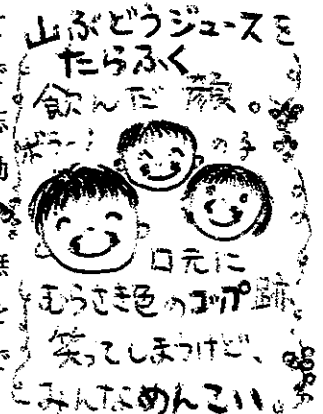 山ぶどうジュースを
たらふく
飲んだ顔。
の子
口元に
むらさき色のコップ跡
笑ってしまうけど、
みんなめんこい。